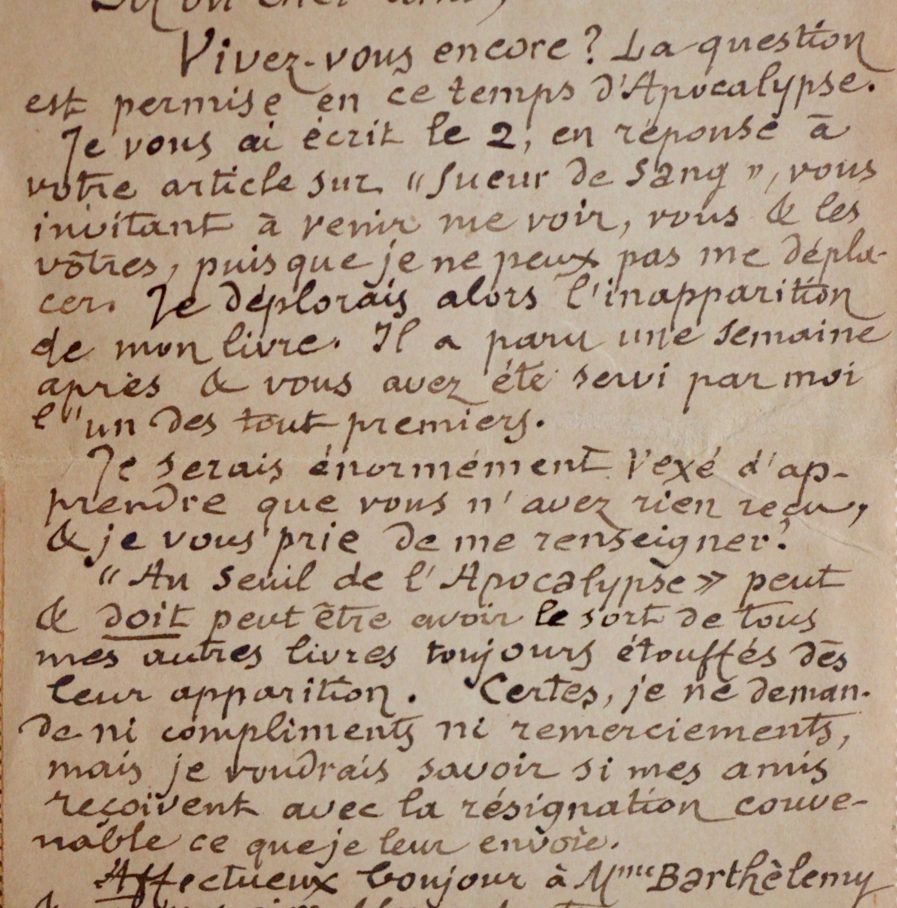 Mon cher ami,
Vivez-vous encore ? La question
est permise en ce temps d'Apocalypse.
Je vous ai écrit le 2, en réponse à
votre article sur "Sueur de Sang", vous
invitant à venir me voir, vous & les
vôtres, puisque je ne peux pas me dépla-
cer. Je déplorais alors l'inapparition
de mon livre. Il a paru une semaine
après & vous avez été servi par moi
l'un des tout premiers.
Je serais énormément vexé d'ap-
prendre que vous n'avez rien reçu,
& je vous prie de me renseigner.
"Au seuil de l'Apocalypse» peut
& doit peut être avoir le sort de tous
mes autres livres toujours étouffés dès
leur apparition. Certes, je ne deman-
de ni compliments ni remerciements,
mais je voudrais savoir si mes amis
reçoivent avec la résignation conve-
nable ce que je leur envoie.
Affectueux bonjour à Mme Barthèlemy
&